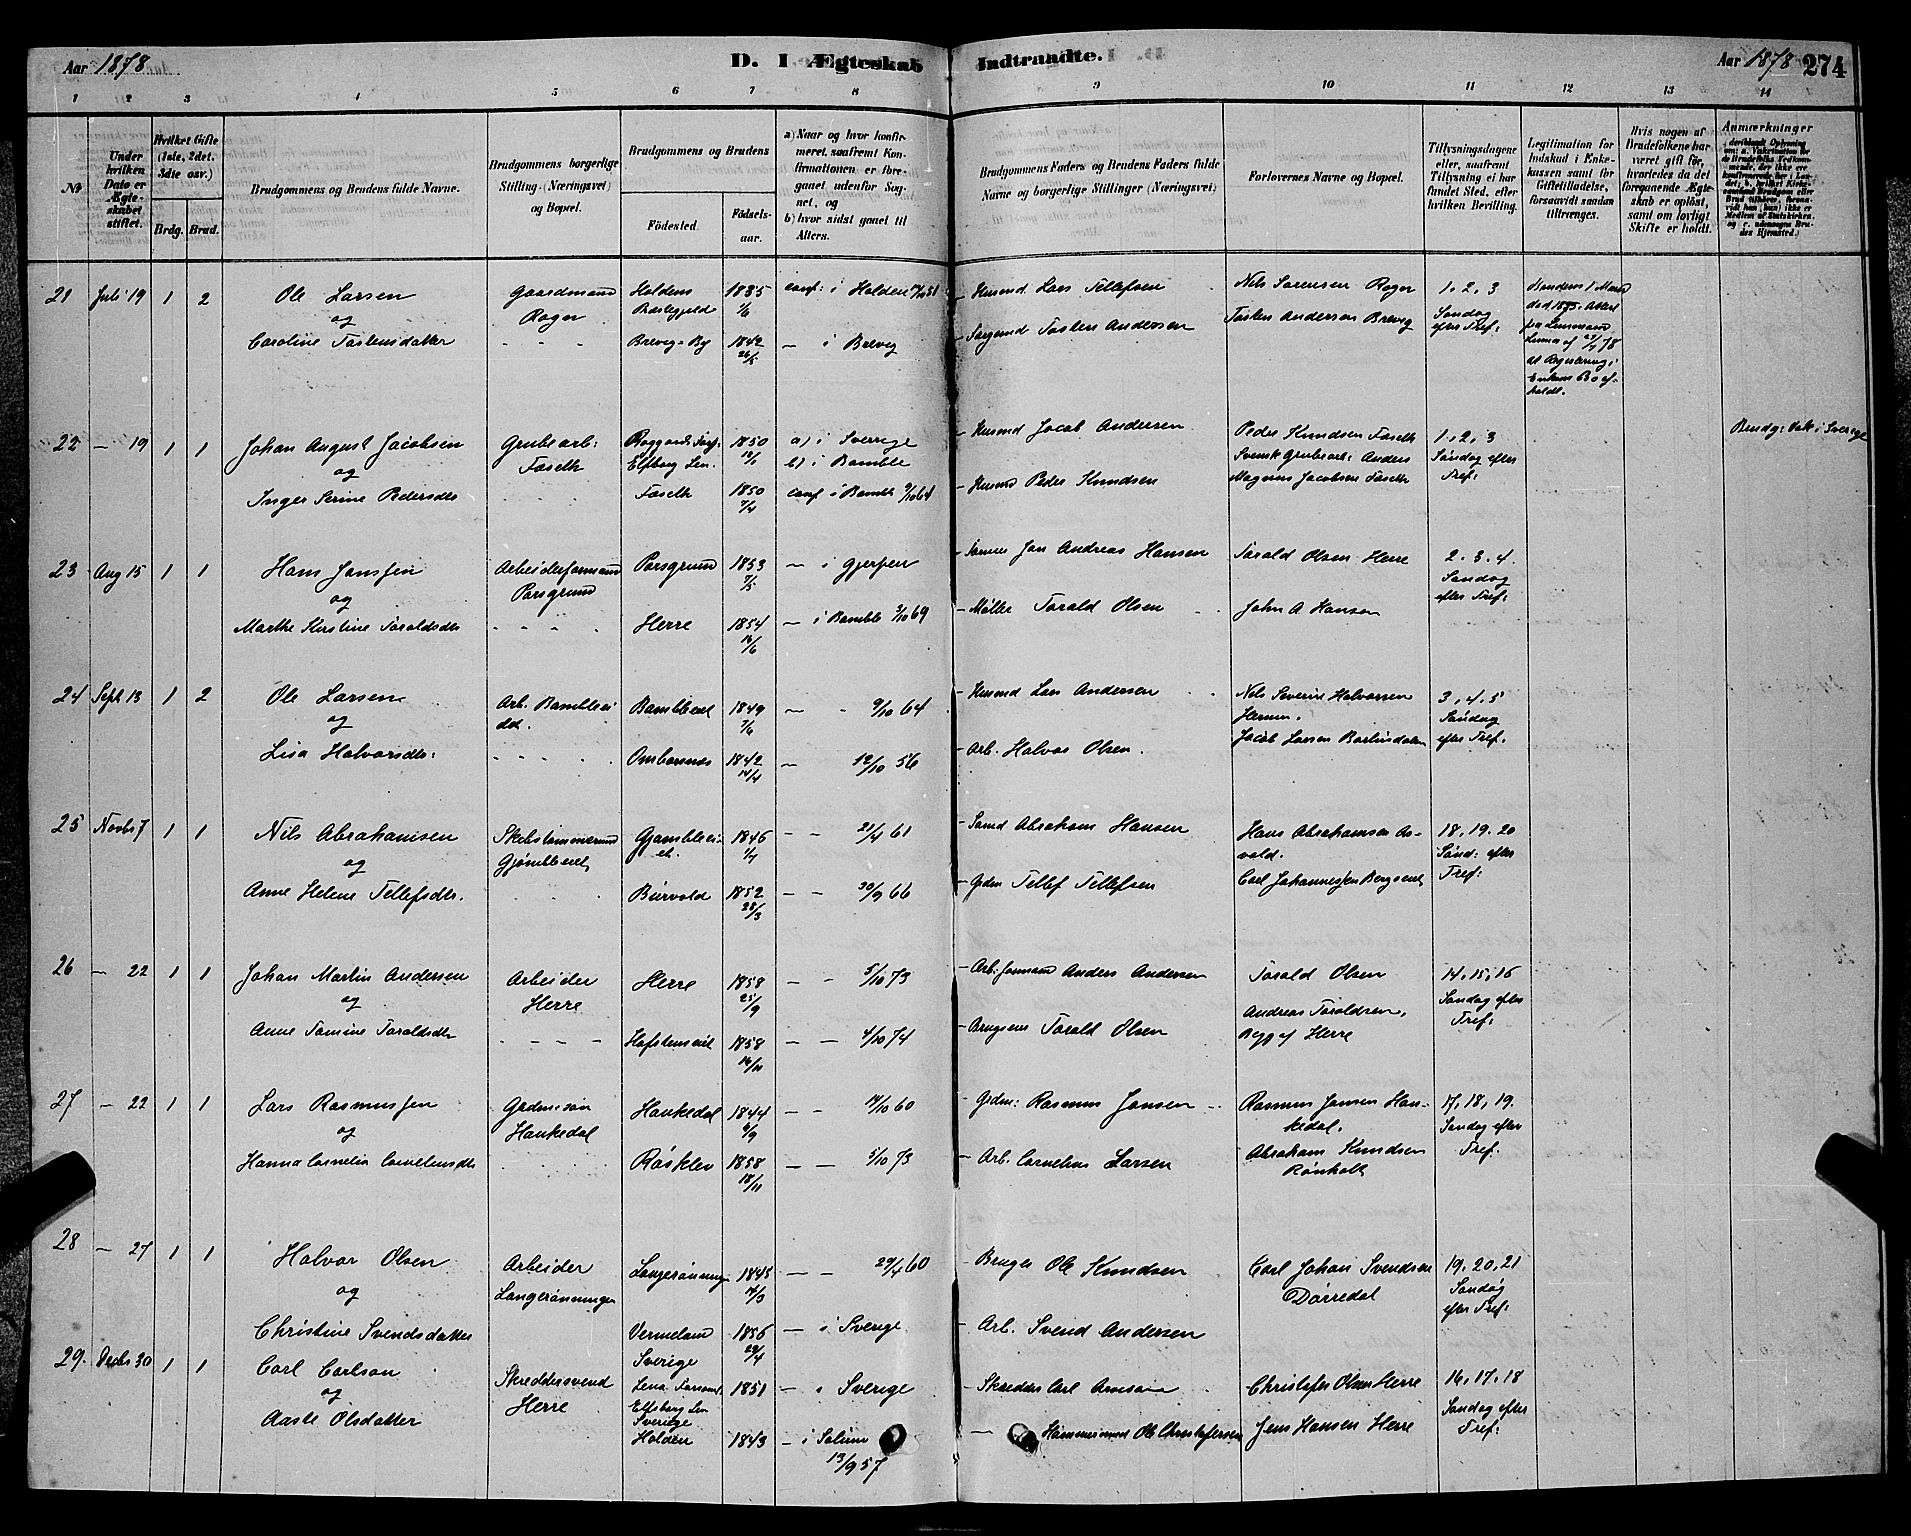 Aar 1878
D. I Ægteskab Indtraadte.
Aar 1878 274
1 2 3 4 5 6 7 8 9 10 11 12 13 14
No
Under hvilken Dato er Ægteskabet stiftet.
Hvilket Gifte (1ste, 2det, 3die osv.)
Brdg. Brud.
Brudgommens og Brudens fulde Navne.
Brudgommens borgerlige Stilling (Næringsvei) og Bopæl.
Brudgommens og Brudens
Fødested.
Fødselsaar.
a) Naar og hvor konfirmeret, saafremt Konfirmationen er foregaaet udenfor Sognet, og
b) hvor sidst gaaet til Alters.
Brudgommens Faders og Brudens Faders fulde Navne og borgerlige Stillinger (Næringsvei)
Forlovernes Navne og Bopæl.
Tillysningsdagene eller, saafremt Tillysning ei har fundet Sted, efter hvilken Bevilling.
Legitimation for Indskud i Enkekassen samt for Giftetilladelse, forsaavidt saadan tiltrænges.
Hvis nogen af Brudefolkene har været gift før, hvorledes da det foregaaende Ægteskab er opløst, samt om lovligt Skifte er holdt.
Anmærkninger
21 Juli 19 1 2 Ole Larsen Gaardmand Holdens 1835 conf: i Holden Husmd Lars Tellefsen Nils Sørensen Roger 1. 2. 3
og Roger Præstegjeld 1/6 Søndag
Caroline Tostensdatter - - - Brevig By 1842 26/5 — i Brevig Tosten Andersen Tosten Andersen Brevig efter Tref:
22 — 19 1 1 Johan August Jacobsen Grubearb: 1850 a) i Sverrige Husmd Jacob Andersen Peder Knudsen Foseth 1. 2. 3
og Foseth Elfborg Len. b) i Bamble Svensk Grubearb: Anders Søndag efter
Inger Serine Pedersdtr - - - Foseth 1850 7/4 conf i Bamble 9/10 64 Husmd Peder Knudsen Magnus Jacobsen Foseth Tref:
Brudg: Vak i Sverige
23 Aug 15 1 1 Hans Jansen Arbeiderformand Porsgrund 1853 7/5 — i Gjerpen Jan Andreas Hansen Torald Olsen Herre 2. 3. 4.
og Porsgrund Søndag
Marthe Kirstine Toraldsdtr - - - Herre 1854 16/6 — i Bamble 3/10 69 Torald Olsen John A Hansen efter Tref:
24 Sept 13 1 2 Ole Larsen Arb. Bambleeidet. Bambleeid 1849 7/6 — - 9/10 64 Husmd Lars Andersen Nils Severin Halvorsen 3. 4. 5
og Søndag
Lisa Halvorsdtr: - - - Omborsnes 1842 14/4 — 12/10 56 Arb. Halvor Olsen. Jacob Larsen efter Tref.
25 Novbr 7 1 1 Nils Abrahamsen Skibstømmermd 1846 1/7 - - 21/4 61 Abraham Hansen Hans Abrahamsen Asvold. 18. 19. 20
og Sønd: efter
Anne Helene Tellefsdtr. - - - Biørvold 1852 28/3 - - 30/9 66 Grdm Tellef Tellefsen Carl Johannessen Tref:
26 — 22 1 1 Johan Martin Andersen Arbeider Herre 1858 25/9 - - 5/10 73 Arb: formand Anders Andersen Torald Olsen 14. 15. 16
og Herre Andreas Toraldsen, Søndag efter
Anne Tomine Toraldsdtr - - - 1858 16/11 - - 4/10 74 Torald Olsen Begge af Herre Tref:
27 — 22 1 1 Lars Rasmussen Grdm: søn Haukedal 1844 6/9 - - 14/10 60 Grdm: Rasmus Jansen Rasmus Jansen Haukedal. 17, 18, 19.
og Haukedal Søndag efter
Hanna Cornelia Corneliusdtr - - - Røsklev 1858 18/11 - - 5/10 73 Arb. Cornelius Larsen Abraham Knudsen Rønholt Tref:
28 — 27 1 1 Halvor Olsen Arbeider Langerønningen 1845 14/3 - - 29/4 60 Bruger Ole Knudsen Carl Johan Svendsen 19. 20. 21
og Langerønningen Dørredal Søndag
Christine Svendsdatter Vermeland 1856 29/4 — i Sverige Arb. Svend Andersen efter Tref:
Sverige
29. Decbr 30 1 1 Carl Carlson Skreddersvend 1851 — i Sverige Skredder Carl Christofer Olsen Herre 16. 17. 18
og Herre Elfsborg Len Sverige Søndag efter
Aaste Olsdatter Holden 1843 — i Solum 13/9 57 Ole Christofersen Jens Hansen Herre Tref: